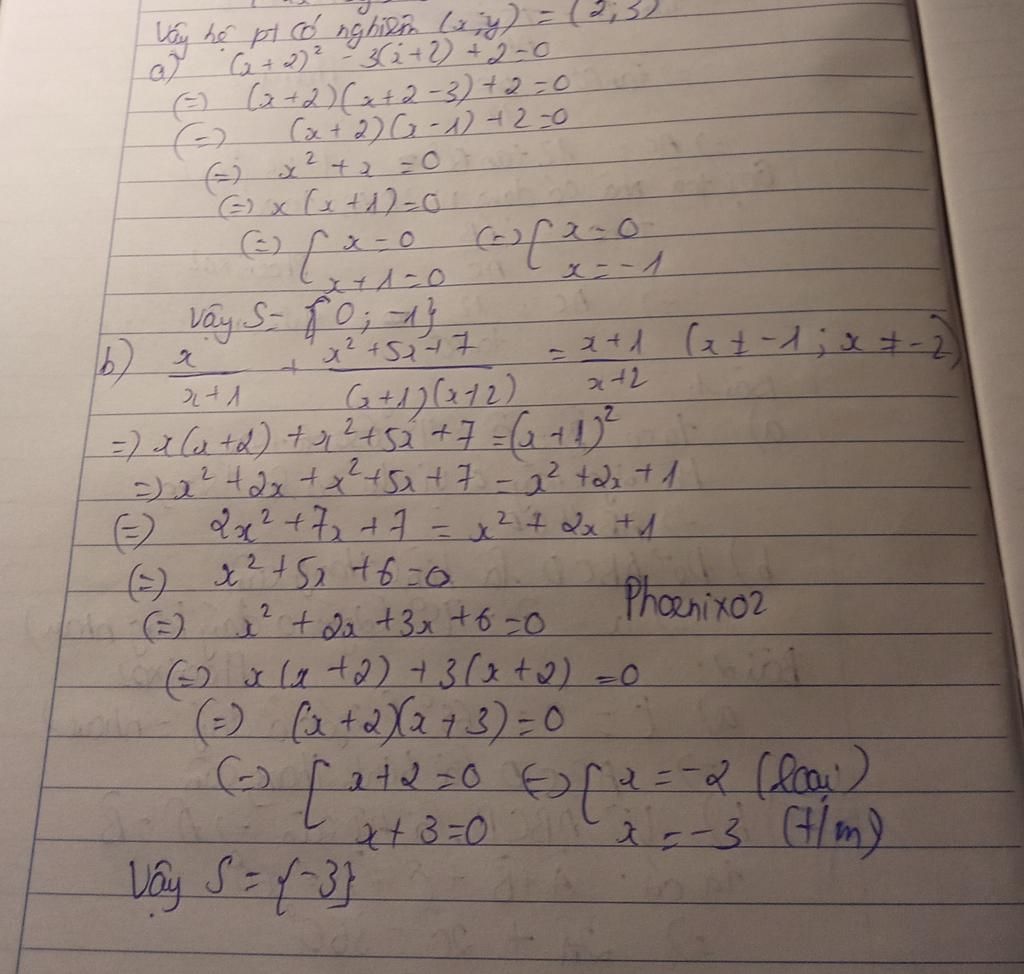 Vậy hệ pt có nghiệm (x;y) = (2;3)
a) (x+2)² - 3(x+2) + 2 = 0
(=) (x+2)(x+2-3) + 2 = 0
(=) (x+2)(x-1) + 2 = 0
(=) x² + x = 0
(=) x(x+1) = 0
(=) [ x = 0 (=) [ x = 0
x+1 = 0 x = -1
Vậy S = {0; -1}
b) x/(x+1) + (x²+5x+7)/((x+1)(x+2)) = (x+1)/(x+2) (x ≠ -1; x ≠ -2)
=) x(x+2) + x²+5x+7 = (x+1)²
=) x² + 2x + x² + 5x + 7 = x² + 2x + 1
(=) 2x² + 7x + 7 = x² + 2x + 1
(=) x² + 5x + 6 = 0
Phoenix02
(=) x² + 2x + 3x + 6 = 0
(=) x(x+2) + 3(x+2) = 0
(=) (x+2)(x+3) = 0
(=) [ x+2 = 0 (=) [ x = -2 (loại)
x+3 = 0 x = -3 (t/m)
Vậy S = {-3}